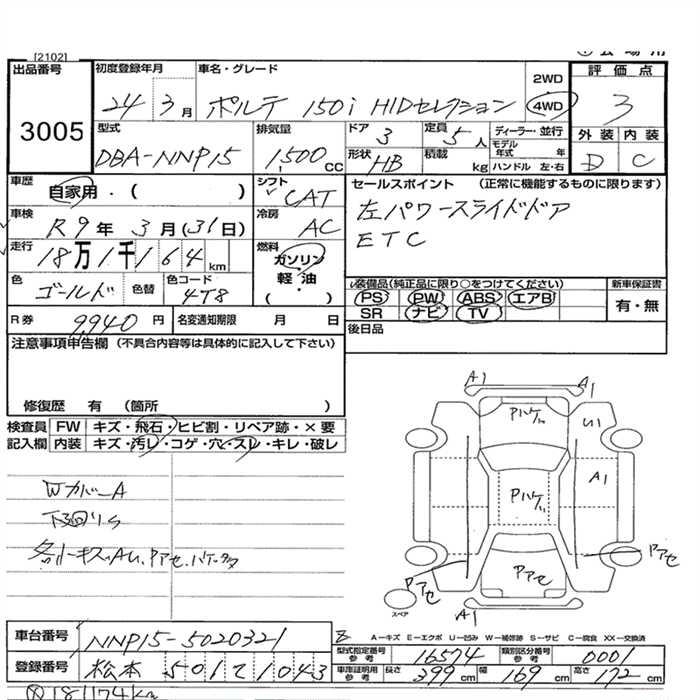 [2102]
出品番号 初度登録年月 車名・グレード 2WD 評価点
3005 24 3月 ポルテ 150i HIDセレクション 4WD 3
型式 排気量 ドア 3 定員 5人 ディーラー・並行 外装 内装
DBA-NNP15 1500 CC 形状 HB 積載 kg モデル年式 年 ハンドル 左・右 D C
車歴 自家用・( ) シフト CAT セールスポイント (正常に機能するものに限ります)
車検 R9年 3月(31日) 冷房 AC 左パワースライドドア
走行 18万1千164km 燃料 ガソリン ETC
軽・油
・( )
色 ゴールド 色替 色コード 4T8 装備品(純正品に限り○をつけてください) 新車保証書
PS PW ABS エアB 有・無
SR ナビ TV
R券 9,940円 名変通知期限 月 日 後日品
注意事項申告欄 (不具合内容等は具体的に記入して下さい)
修復歴 有 (箇所 )
検査員 FW キズ・飛石・ヒビ割・リペア跡・×要
記入欄 内装 キズ・汚レ・コゲ・穴・スレ・キレ・破レ
A1 A1
Pハゲ U1
A1
Pハゲ
Pアセ
Pアセ Pアセ
A1
スペア
WカバーA
下廻リS
各リーキズAU、Pアセ、ハゲ
A-キズ E-エクボ U-凹み W-補修跡 S-サビ C-腐食 XX-交換済
車台番号 NNP15-5020321 型式指定番号 参考 16574 類別区分番号 参考 0001
登録番号 松本 501 1043 車庫証明用 参考 長さ 399cm 幅 169cm 高さ 172cm
181174km